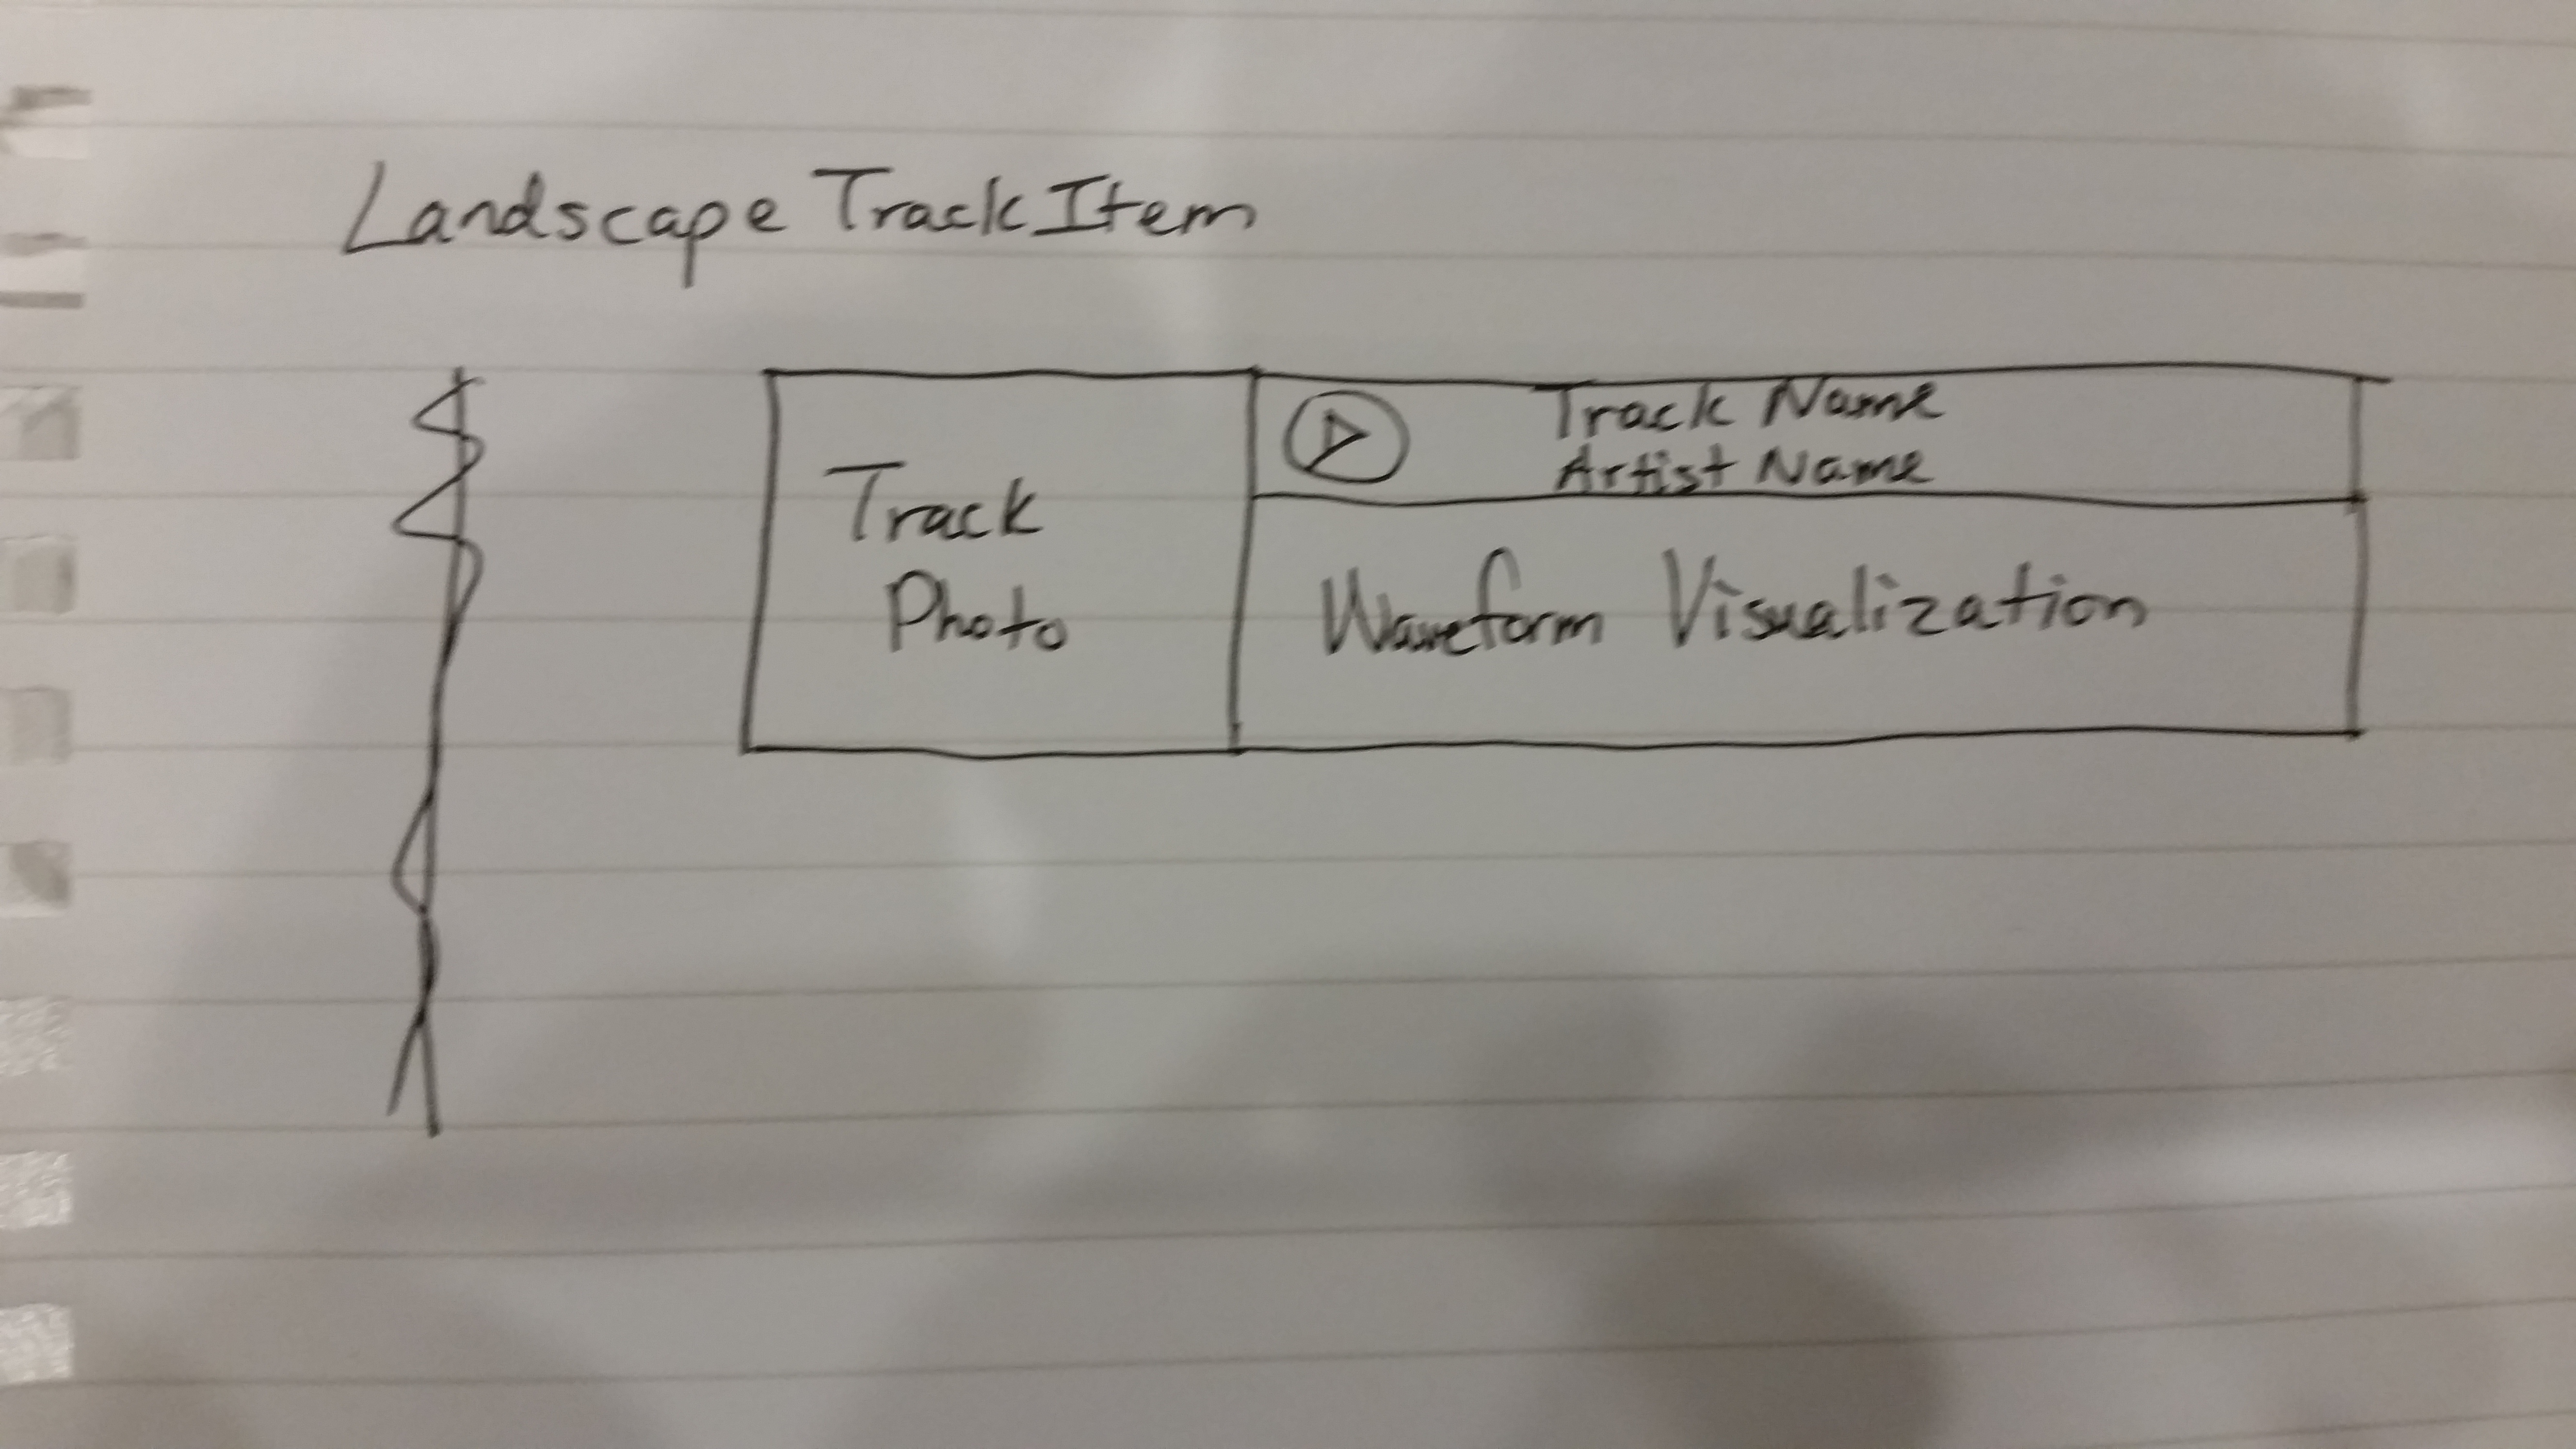 Landscape Track Item
Track
Photo
Track Name
Artist Name
Waveform Visualization